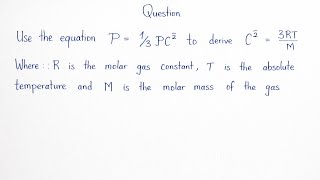 Question
Use the equation P = 1/3 PC^2̄ to derive C^2̄ = 3RT/M
Where:: R is the molar gas constant, T is the absolute
temperature and M is the molar mass of the gas